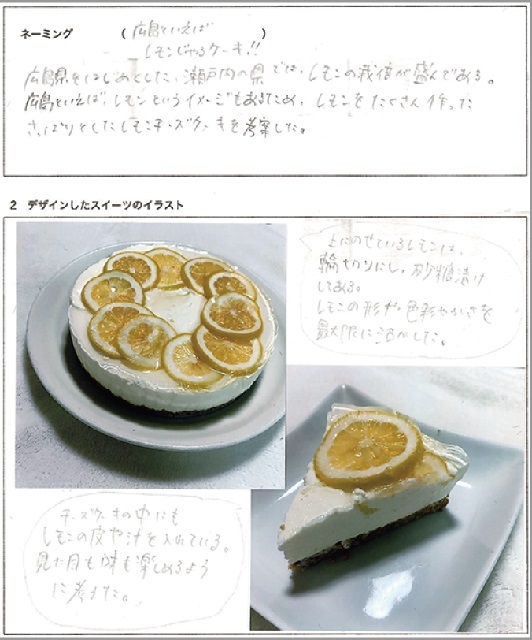 ネーミング （広島といえば
レモンじゃろケーキ!! ）
広島県をはじめとした、瀬戸内の県では、レモンの栽培が盛んである。
広島といえば、レモンというイメージもあるため、レモンをたくさん使った
さっぱりとしたレモンチーズケーキを考案した。
2 デザインしたスイーツのイラスト
上にのせているレモンは、
輪切りにし、砂糖漬け
してある。
レモンの形や色彩やかさを
最大限に活かした。
チーズケーキの中にも
レモンの皮や汁を入れている。
見た目も味も楽しめるよう
に考えた。